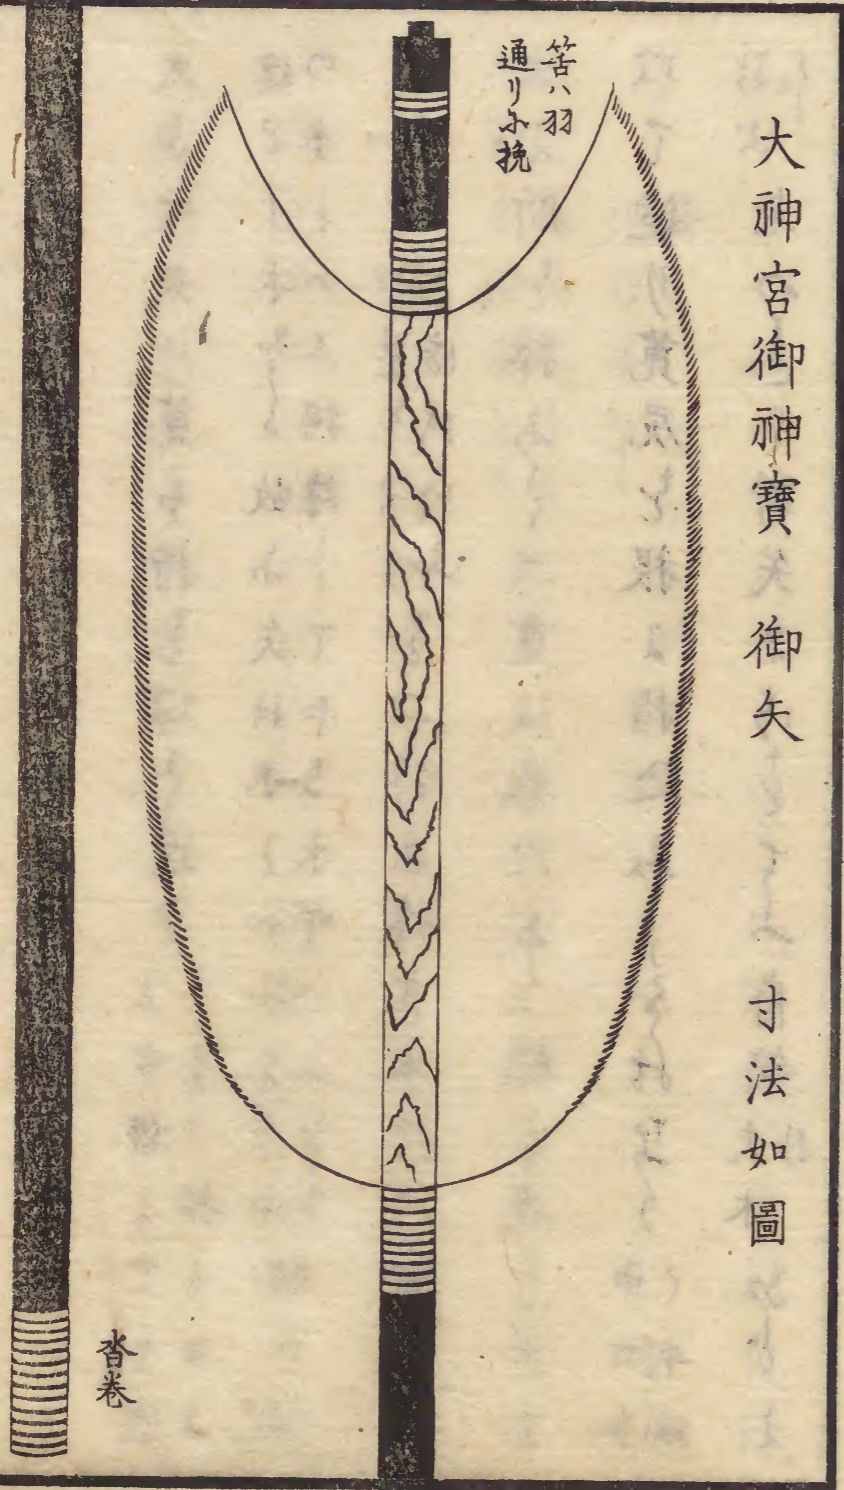 大神宮御神寶 御矢 寸法如圖
筈ハ羽
通リニ挽
沓巻